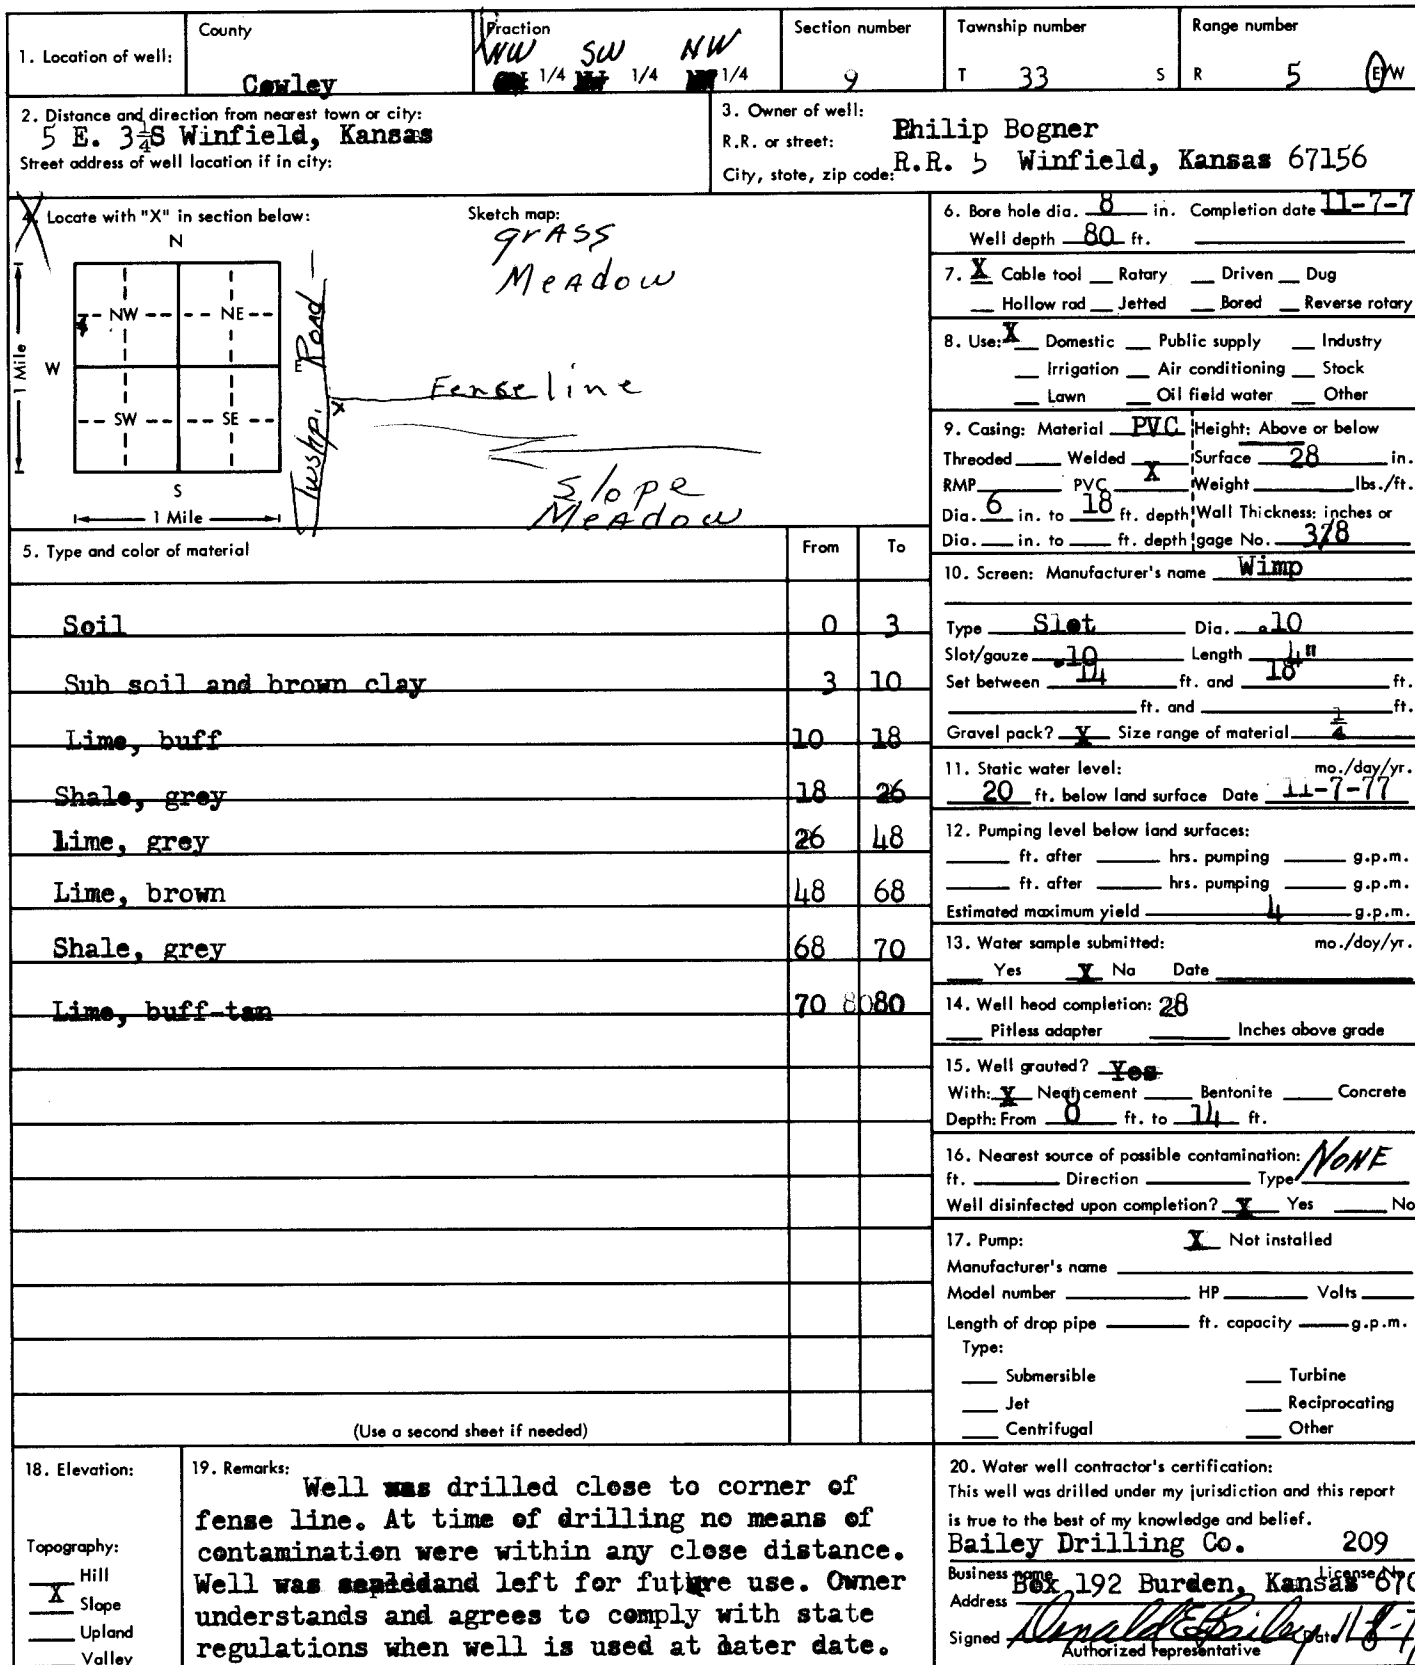 1. Location of well:
County
Cowley
Fraction
NW SW NW
1/4 1/4 1/4
Section number
9
Township number
T 33 S
Range number
R 5 E/W
2. Distance and direction from nearest town or city:
5 E. 3 1/4 S Winfield, Kansas
Street address of well location if in city:
3. Owner of well: Philip Bogner
R.R. or street:
R.R. 5 Winfield, Kansas 67156
City, state, zip code:
4. Locate with "X" in section below:
N
NW NE
W E
SW SE
S
1 Mile
1 Mile
Sketch map:
grass
Meadow
Twshp. Road
x
Fense line
Slope
Meadow
5. Type and color of material From To
Soil 0 3
Sub soil and brown clay 3 10
Lime, buff 10 18
Shale, grey 18 26
Lime, grey 26 48
Lime, brown 48 68
Shale, grey 68 70
Lime, buff-tan 70 80 80
(Use a second sheet if needed)
6. Bore hole dia. 8 in. Completion date 11-7-7
Well depth 80 ft.
7. X Cable tool Rotary Driven Dug
Hollow rod Jetted Bored Reverse rotary
8. Use: X Domestic Public supply Industry
Irrigation Air conditioning Stock
Lawn Oil field water Other
9. Casing: Material PVC Height: Above or below
Threaded Welded Surface 28 in.
RMP PVC X Weight lbs./ft.
Dia. 6 in. to 18 ft. depth Wall Thickness: inches or
Dia. in. to ft. depth gage No. 3/8
10. Screen: Manufacturer's name Wimp
Type Slot Dia. .10
Slot/gauze .10 Length 4"
Set between 14 ft. and 18 ft.
ft. and ft.
Gravel pack? X Size range of material 1/4
11. Static water level: mo./day/yr.
20 ft. below land surface Date 11-7-77
12. Pumping level below land surfaces:
ft. after hrs. pumping g.p.m.
ft. after hrs. pumping g.p.m.
Estimated maximum yield 4 g.p.m.
13. Water sample submitted: mo./day/yr.
Yes X No Date
14. Well head completion: 28
Pitless adapter Inches above grade
15. Well grouted? Yes
With: X Neat cement Bentonite Concrete
Depth: From 0 ft. to 14 ft.
16. Nearest source of possible contamination: NONE
ft. Direction Type
Well disinfected upon completion? X Yes No
17. Pump: X Not installed
Manufacturer's name
Model number HP Volts
Length of drop pipe ft. capacity g.p.m.
Type:
Submersible Turbine
Jet Reciprocating
Centrifugal Other
18. Elevation:
Topography:
Hill
X Slope
Upland
Valley
19. Remarks:
Well was drilled close to corner of
fense line. At time of drilling no means of
contamination were within any close distance.
Well was and left for future use. Owner
understands and agrees to comply with state
regulations when well is used at later date.
20. Water well contractor's certification:
This well was drilled under my jurisdiction and this report
is true to the best of my knowledge and belief.
Bailey Drilling Co. 209
Business name License No.
Address Box 192 Burden, Kansas 670
Signed Donald E Bailey Date 11-8-7
Authorized representative